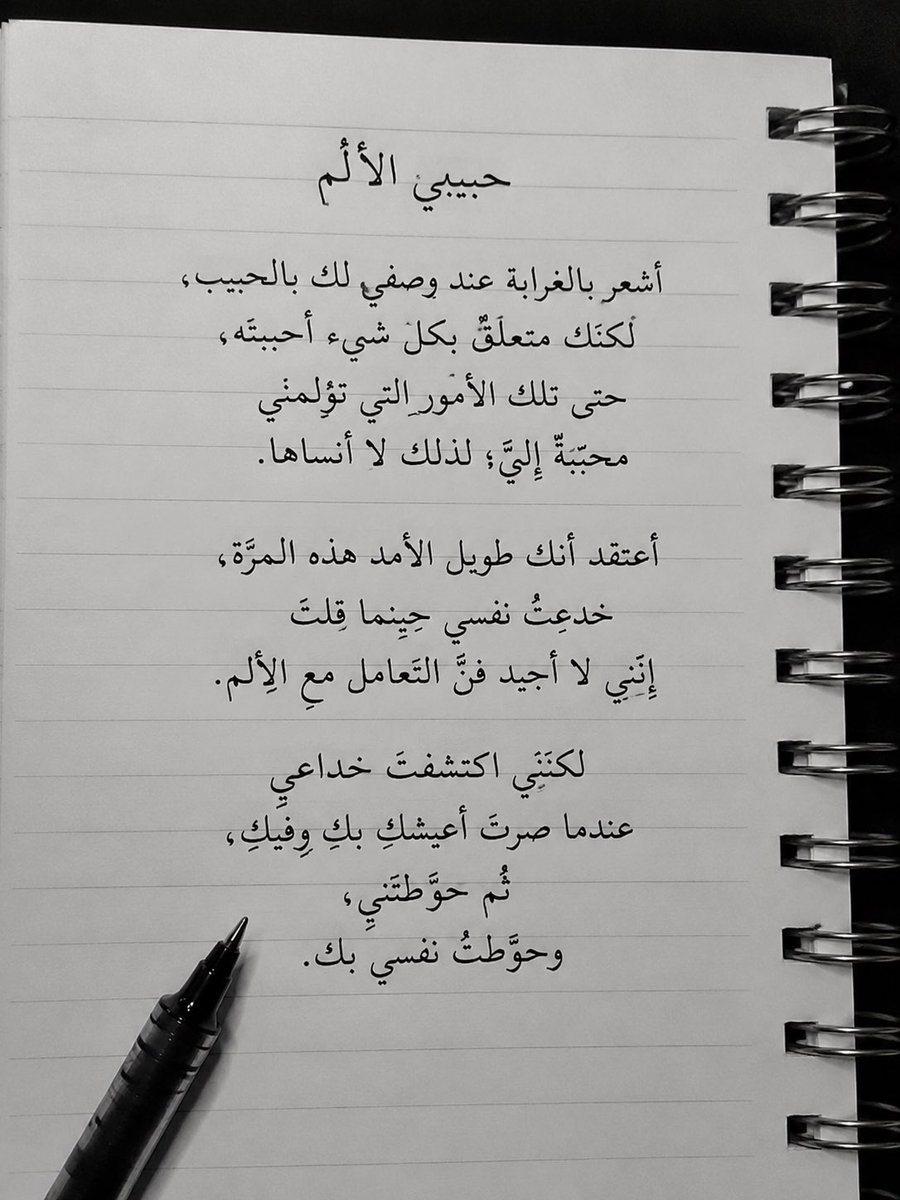 حبيبي الألُم
أشعر بالغرابة عند وصفي لك بالحبيب،
لكنَك متعلَقٌ بكل شيء أحببتَه،
حتى تلك الأمور التي تؤُلمنْي
محبّبَةٌ إِليَّ؛ لذلك لا أنساها.
أعتقد أنك طويل الأمد هذه المرَّة،
خدعِتُ نفسي حِيِنما قِلتَ
إِنَنِي لا أجيد فنَّ التَعامل معِ الِألم.
لكنَنَِي اكتشفتَ خداعيِ
عندما صرتَ أعيشكِ بكِ وِفيكِ،
ثُم حوَّطتَنيِ،
وحوَّطتُ نفسي بك.